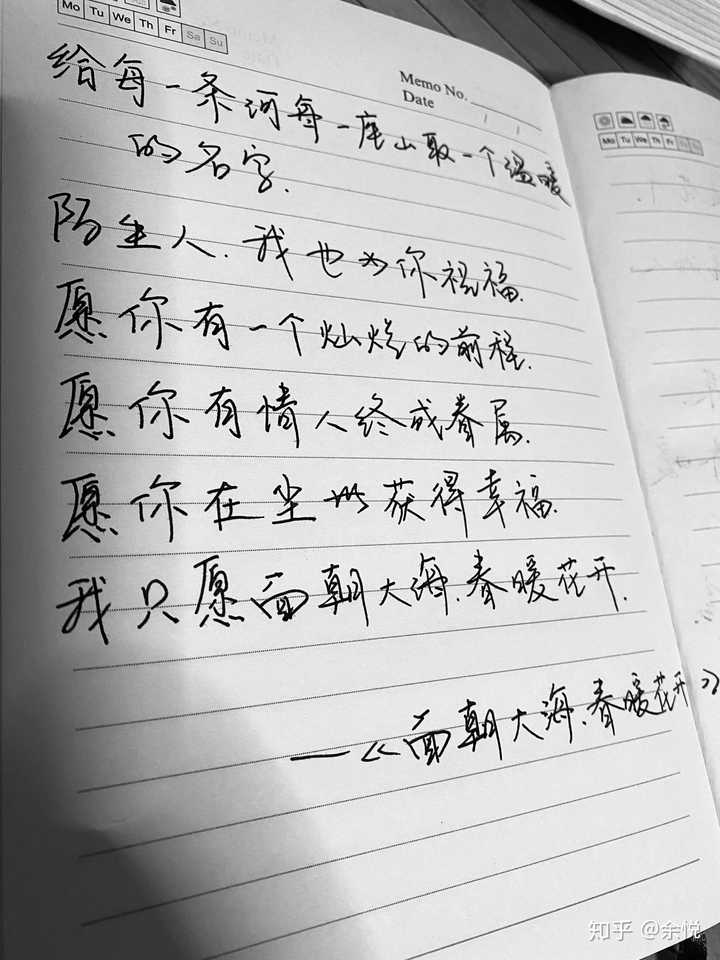 Mo Tu We Th Fr Sa Su
Memo No.
Date / /
Mo Tu We Th Fr Sa Su
给每一条河每一座山取一个温暖
的名字.
陌生人.我也为你祝福.
愿你有一个灿烂的前程.
愿你有情人终成眷属.
愿你在尘世获得幸福.
我只愿面朝大海.春暖花开.
—《面朝大海.春暖花开》
知乎 @余悦